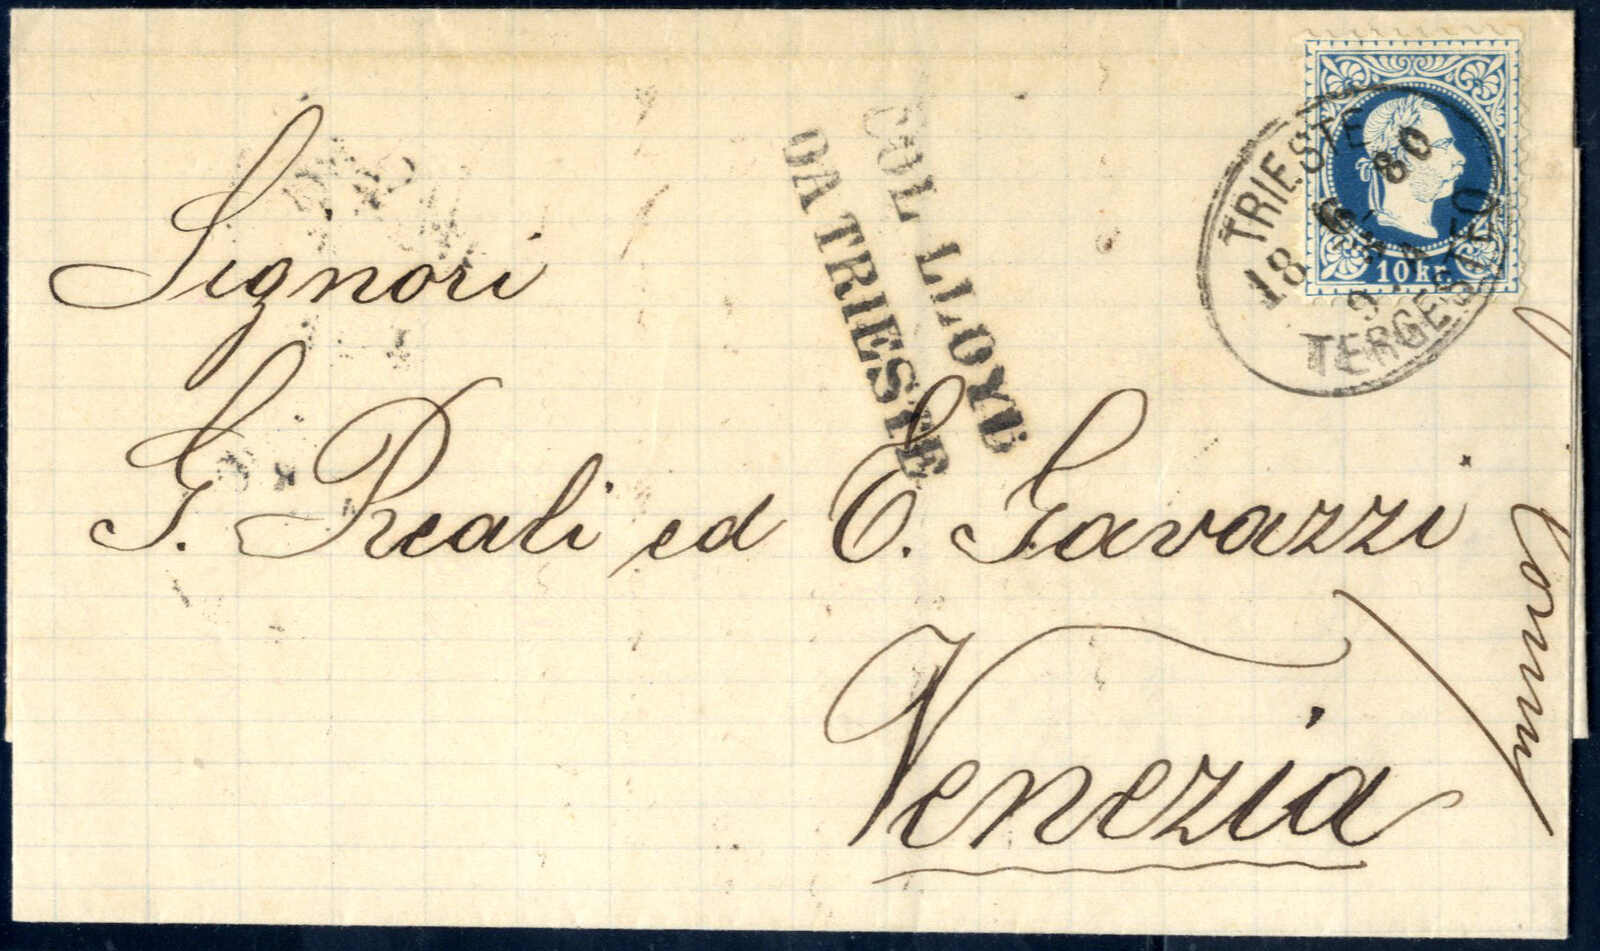 Signori
G. Reali ed E. Gavazzi
Venezia
COL LLOYD
DA TRIESTE
TRIESTE
18 80
TERGESTEO
10 kr.